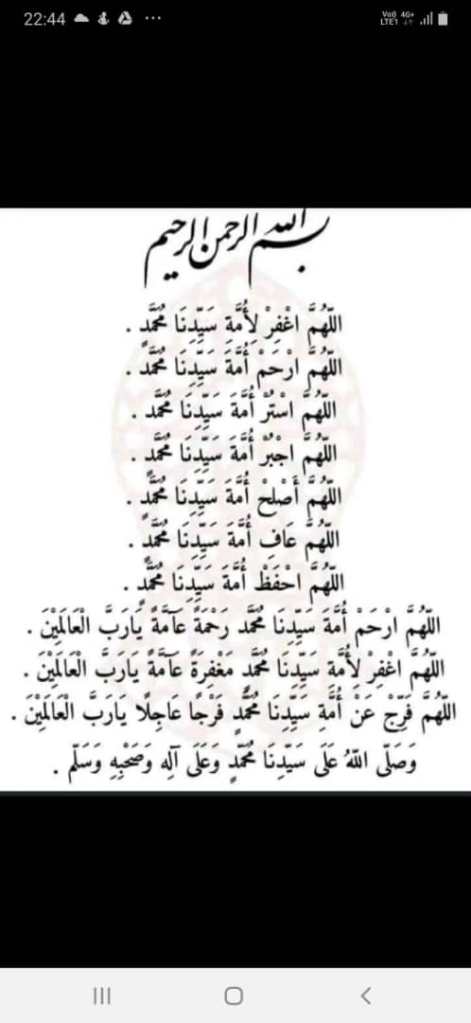 22:44
Vo) 4G+
LTE1
بسم الله الرحمن الرحيم
اللّهُمَّ اغْفِرْ لِأُمَّةِ سَيِّدِنَا مُحَمَّدٍ .
اللّهُمَّ ارْحَمْ أُمَّةَ سَيِّدِنَا مُحَمَّدٍ .
اللّهُمَّ اسْتُرْ أُمَّةَ سَيِّدِنَا مُحَمَّد .
اللّهُمَّ اجْبُرْ أُمَّةَ سَيِّدِنَا مُحَمَّد .
اللّهُمَّ أَصْلِحْ أُمَّةَ سَيِّدِنَا مُحَمَّدٍ .
اللّهُمَّ عَافِ أُمَّةَ سَيِّدِنَا مُحَمَّدٍ .
اللّهُمَّ احْفَظْ أُمَّةَ سَيِّدِنَا مُحَمَّدٍ .
اللّهُمَّ ارْحَمْ أُمَّةَ سَيِّدِنَا مُحَمَّد رَحْمَةً عَآمَّةً يَارَبَّ الْعَالَمِيْنَ .
اللّهُمَّ اغْفِرْ لِأُمَّةِ سَيِّدِنَا مُحَمَّدٍ مَغْفِرَةً عَآمَّةً يَارَبَّ الْعَالَمِيْنَ .
اللّهُمَّ فَرِّجْ عَنْ أُمَّةِ سَيِّدِنَا مُحَمَّدٍ فَرْجًا عَاجِلًا يارَبَّ الْعَالَمِيْنَ .
وَصَلَّى اللّهُ عَلَى سَيِّدِنَا مُحَمَّدٍ وَعَلَى آلِهِ وَصَحْبِهِ وَسَلَّم .